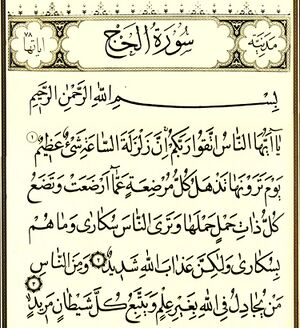 مدنية سورة الحج آياتها ٧٨
بِسْمِ اللَّهِ الرَّحْمَٰنِ الرَّحِيمِ
يَا أَيُّهَا النَّاسُ اتَّقُوا رَبَّكُمْ إِنَّ زَلْزَلَةَ السَّاعَةِ شَيْءٌ عَظِيمٌ ١
يَوْمَ تَرَوْنَهَا تَذْهَلُ كُلُّ مُرْضِعَةٍ عَمَّا أَرْضَعَتْ وَتَضَعُ
كُلُّ ذَاتِ حَمْلٍ حَمْلَهَا وَتَرَى النَّاسَ سُكَارَىٰ وَمَا هُمْ
بِسُكَارَىٰ وَلَٰكِنَّ عَذَابَ اللَّهِ شَدِيدٌ ٢ وَمِنَ النَّاسِ
مَنْ يُجَادِلُ فِي اللَّهِ بِغَيْرِ عِلْمٍ وَيَتَّبِعُ كُلَّ شَيْطَانٍ مَرِيدٍ ٣